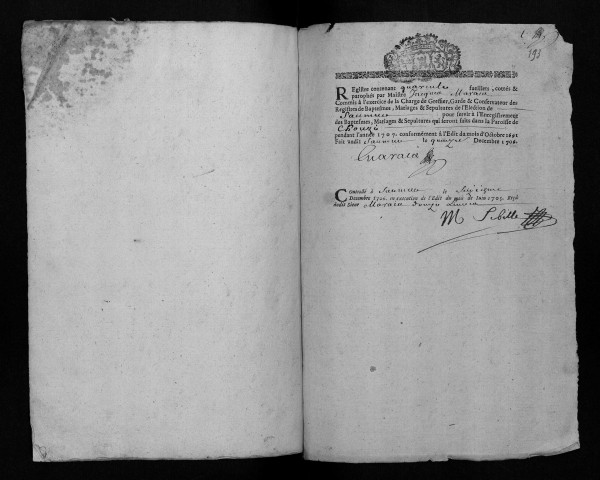 191
REgistre contenant quarente feüillets, cottés &
paraphés par Maistre Marais
Commis à l'exercice de la Charge de Greffier, Garde & Conservateur des
Registres de Baptesmes, Mariages & Sepultures de l'Election de
Saumur pour servir à l'Enregistrement
des Baptesmes, Mariages & Sepultures qui seront faits dans la Paroisse de
Chouzé
pendant l'année 1707. conformément à l'Edit du mois d'Octobre 1691
Fait audit Saumur le quinze Decembre 1706.
Controllé à Saumur le Seizieme
Decembre 1706. en execution de l'Edit du mois de Juin 1705. Reçû
dudit Sieur Marais
M Sibille